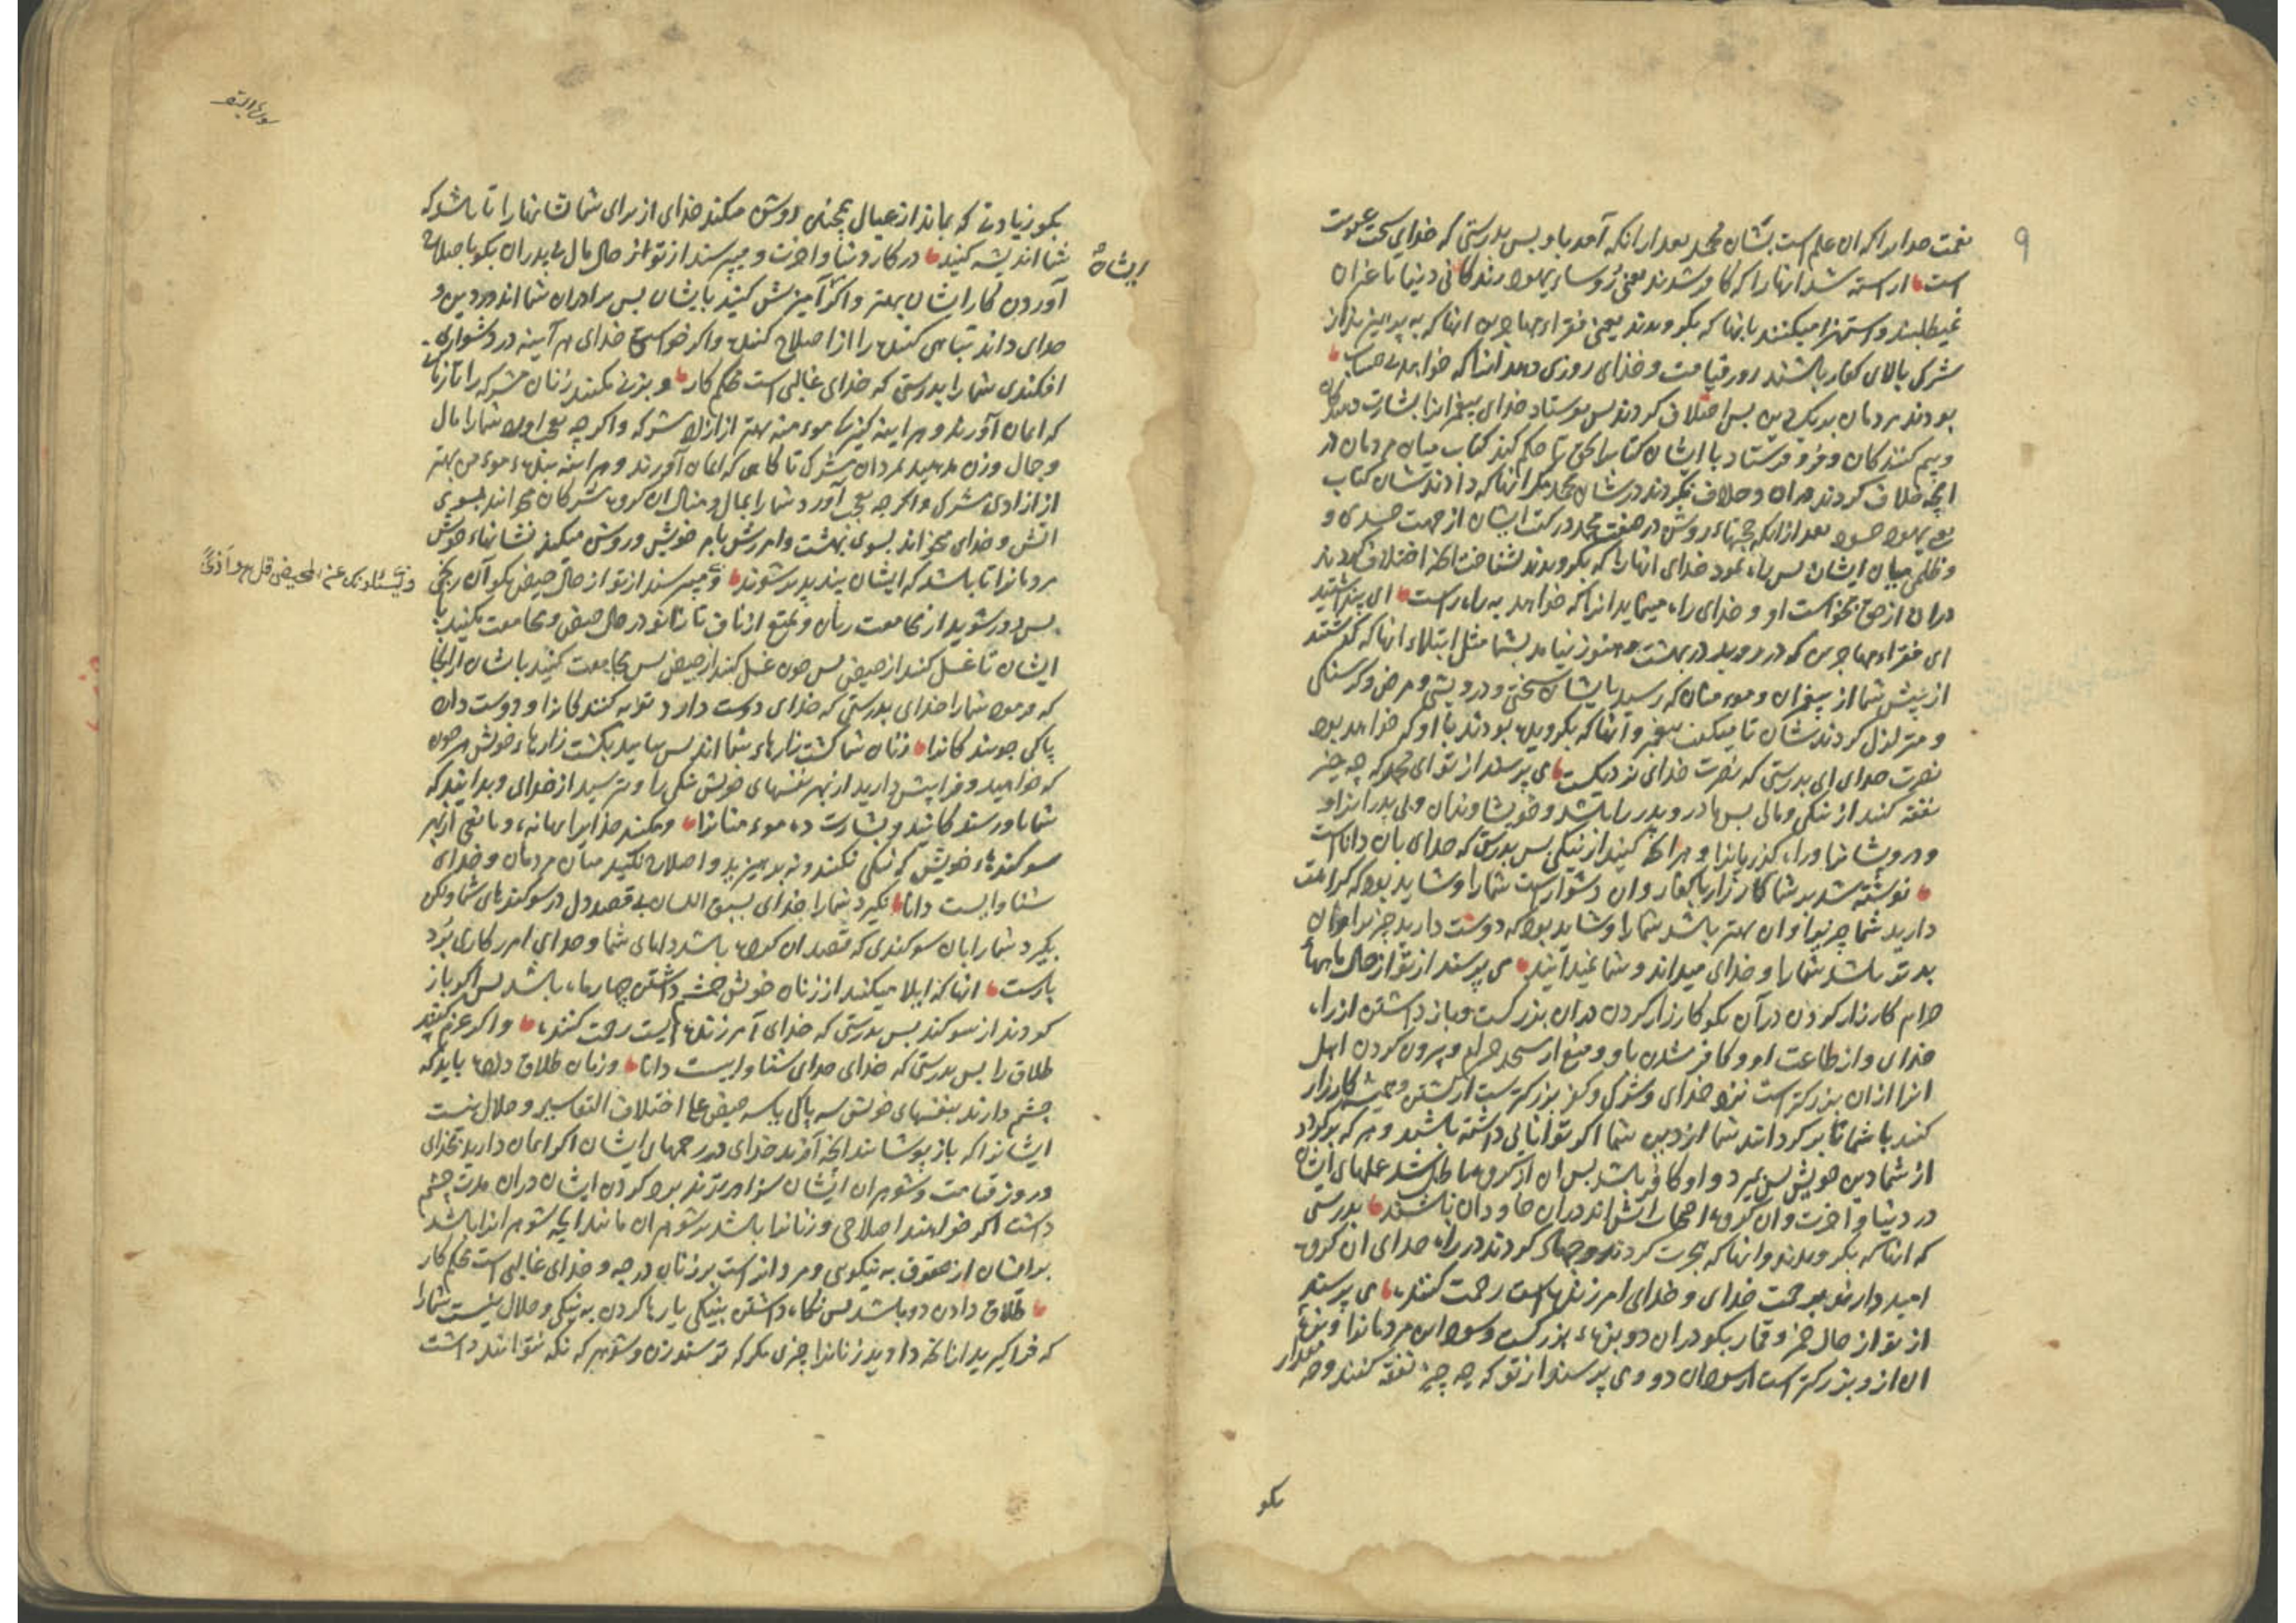 ۹
نعمت خدایرا که ان علم است بشان محمد بعد از انکه آمد باو بس بدرستی که خدای سخت عقوبت
است اراسته شد انهارا که کافر شدند یعنی رؤساء یهود زندکانی دنیا تا غیر ان
نمیطلبند و استهزا میکنند بانها که بکرویدند یعنی فقراء مهاجرین انها که به پرهیزند از
شرک بالای کفار باشند روز قیامت و خدای روزی دهد انرا که خواهد بی حساب
بودند مردمان بر یک دین بس اختلاف کردند بس فرستاد خدای پیغمبرانرا بشارت دهندکان
و بیم کنندکان و فرو فرستاد با ایشان کتاب را بحق تا حکم کند کتاب میان مردمان در
انچه خلاف کردند دران و خلاف نکردند در شان محمد مکر انها که دادندشان کتاب
یعنی یهود بعد از انکه حجتهاء روشن در صفت محمد در کتب ایشان از جهت حسدی و
ظلمی میان ایشان بس راه نمود خدای انهارا که بکرویدند بشناخت انچه اختلاف کردند
دران از حق بخواست او و خدای راه مینماید انرا که خواهد به راه راست ای پنداشتید
ای فقراء مهاجرین که در روید در بهشت و هنوز نیامد بشما مثل ابتلاء انها که کذشتند
از پیش شما از پیغمبران و مومنان که رسید بایشان سختی و درویشی و مرض و کرسنکی
و متزلزل کردندشان تا میکفت پیغمبر و انها که بکرویده بودند با او که خواهد بود
نصرت خدای ای بدرستی که نصرت خدای نزدیکست می پرسند از تو ای محمد که چه چیز
نفقه کنند از نیکی و مالی بس مادر و پدر را باشد و خویشاوندان و بی پدرانرا و
و درویشانرا و راه کذریانرا و هر انچه کنید از نیکی بس بدرستی که خدای بان داناست
نوشته شد بر شما کارزار با کفار و ان دشوارست شمارا و شاید بود که کراهت
دارید شما چیزیرا و ان بهتر باشد شمارا و شاید بود که دوست دارید چیزیرا و ان
بدتر باشد شمارا و خدای میداند و شما نمیدانید می پرسند از تو از حال ماههاء
حرام کارزار کردن در آن بکو کارزار کردن دران بزرکست و باز داشتن از راه
خدای و از طاعت او و کافر شدن باو و منع از مسجد حرام و بیرون کردن اهل
انرا از ان بزرکتر است نزد خدای و شرک و کفر بزرکترست از کشتن و همیشه کارزار
کنند با شما تا بر کردانند شما از دین شما اکر توانایی داشته باشند و هر که بر کردد
از شما دین خویش بس بمیرد و او کافر باشد بس ان کروه باطل شد عملهای ایشان
در دنیا و اخرت و ان کروه اصحاب اتش اند دران جاودان باشند بدرستی
که انها که بکرویدند و انها که هجرت کردند و جهاد کردند در راه خدای ان کروه
امید دارند برحمت خدای و خدای امرزنده است رحمت کننده می پرسند
از تو از حال خمر و قمار بکو دران دو بزهاء بزرکست و سودها مر مردمانرا و بزه
ان از و بزرکتر است از سود ان دو و می پرسند از تو که چه چیز نفقه کنند و چه مقدار
بکو
سورة البقر
بکو زیادتی که بماند از عیال همچنین روشن میکند خدای از برای شما نشانهارا تا باشد که
شما اندیشه کنید در کار دنیا و اخرت و میپرسند از تو از حال مال بی پدران بکو باصلاح
ایشان
آوردن کار ایشان بهتر و اکر آمیزش کنید بایشان بس برادران شما اند در دین و
خدای داند تباهی کننده را از اصلاح کننده و اکر خواستی خدای هر آینه در دشواری
افکندی شمارا بدرستی که خدای غالبی است محکم کار و بزنی مکنید زنان مشرکه را تا زمانی
که ایمان آورند و هر اینه کنیزک مومنه بهتر از ازاد مشرکه و اکر چه بعجب اورد شمارا بمال
و جمال و زن مدهید بمردان مشرک تا کاهی که ایمان آورند و هر اینه بنده مومن بهتر
از ازادی مشرک و اکر چه بعجب آورد شمارا بمال و منال ان کروه مشرکان میخوانند بسوی
اتش و خدای میخواند بسوی بهشت و امرزش بامر خویش و روشن میکند نشانهاء خویش
مردمانرا تا باشد که ایشان پندپذیر شوند و میپرسند از تو از حال حیض بکو آن رنجی
و یسئلونک عن المحیض قل هو اذی
بس دور شوید از مجامعت زنان و تمتع از ناف تا زانو در حال حیض و مجامعت مکنید با
ایشان تا غسل کنند از حیض بس چون غسل کنند از حیض بس مجامعت کنید باشان از انجا
که فرمود شمارا خدای بدرستی که خدای دوست دارد توبه کنندکانرا و دوست دارد
پاکی جویندکانرا زنان شما کشت زارهاء شما اند بس بیایید بکشت زارهاء خویش هر چون
که خواهید و فرا پیش دارید از بهر نفسهای خویش نیکی را و بترسید از خدای و بدانید که
شما باو رسندکانید و بشارت ده مومنانرا و مکنید خدایرا بهانه و مانعی از بهر
سوکندهاء خویش که نیکی نکنید و نه پرهیزید و اصلاح نکنید میان مردمان و خدای
شنواییست دانا نکیرد شمارا خدای بسبق اللسان بی قصد دل در سوکندهای شما ولکن
بکیرد شمارا بان سوکندی که قصد ان کرده باشد دلهای شما و خدای امرزکاری برد
بارست انها که ایلا میکنند از زنان خویش چشم داشتن چهار ماه باشد بس اکر باز
کردند از سوکند بس بدرستی که خدای آمرزنده ایست رحمت کننده و اکر عزم کنند
طلاق را بس بدرستی که خدای شنواییست دانا و زنان طلاق داده باید که
چشم دارند بنفسهای خویش سه پاکی یا سه حیض علی اختلاف التفاسیر و حلال نیست
ایشانرا که باز پوشانند انچه آفرید خدای در رحمهای ایشان اکر ایمان دارید بخدای
و روز قیامت و شوهران ایشان سزاوارترند برد کردن ایشان دران مدت چشم
داشت اکر خواهند اصلاحی و زنانرا باشد بر شوهران مانند انچه شوهرانرا باشد
بر ایشان از حقوق به نیکویی و مردانراست بر زنان درجه و خدای غالبی است محکم کار
طلاق دادن دو باشد بس نکاه داشتن بنیکی یا رها کردن به نیکی و حلال نیست شمارا
که فرا کیرید از انچه دادید زنانرا چیزی مکر که ترسند زن و شوهر که نکه نتوانند داشت